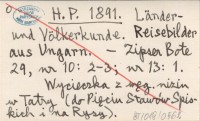 H. P. 1891. Länder-
und Völkerkunde. Reisebilder
aus Ungarn. — Zipser Bote
29, nr 10: 2-3; nr 13: 1.
Wycieczka z węg. nizin
w Tatry (do Pięciu Stawów Spis-
kich i na Rysy).